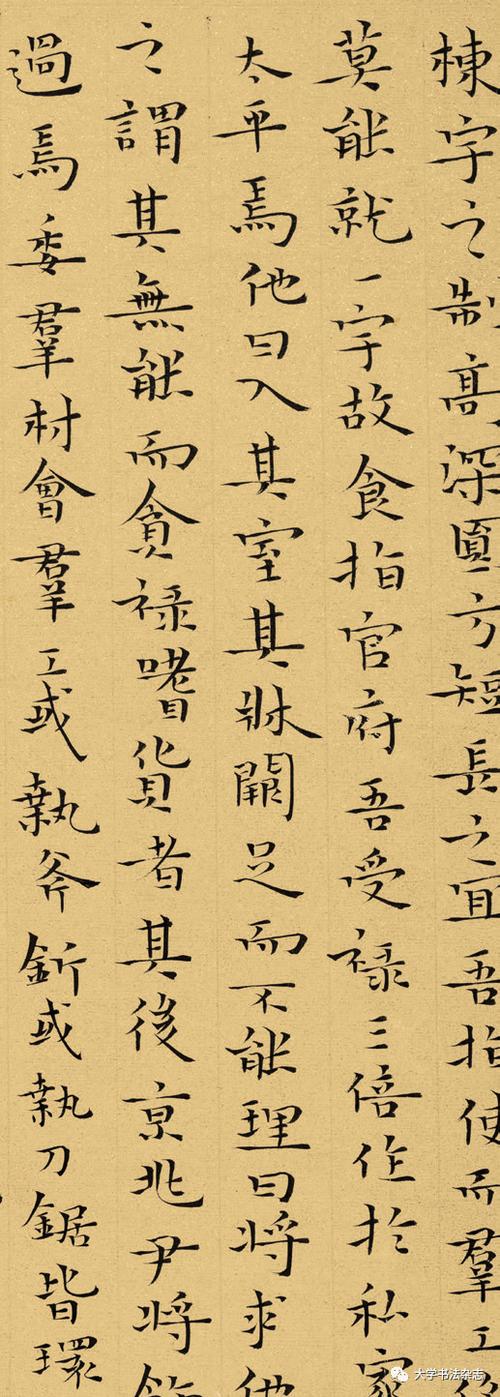 棟宇之制高深圓方短長之宜吾指使而羣工
莫能就一宇故食指官府吾受禄三倍作於私家
太平焉他日入其室其牀闕足而不能理曰將求他
之謂其無能而貪禄嗜貨者其後京兆尹將飾
過焉委羣材會羣工或執斧釿或執刀鋸皆環
大学书法杂志